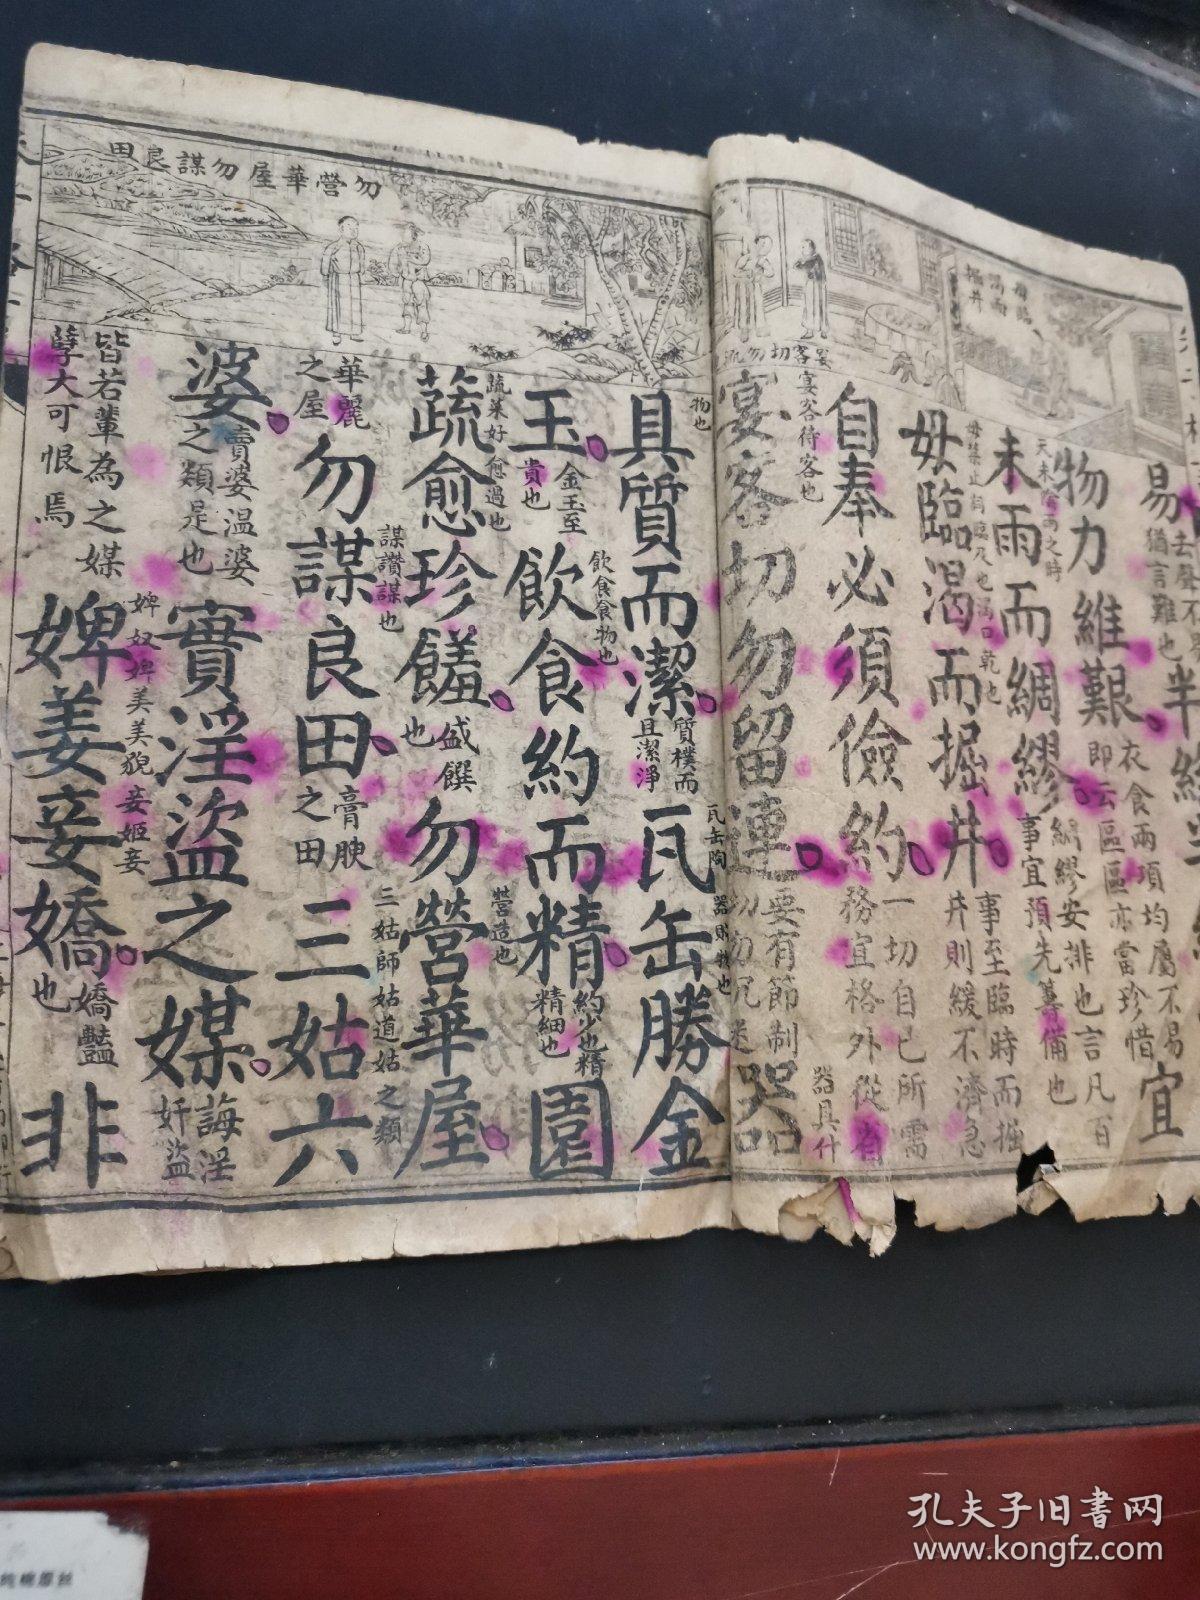 毋臨
渴而
掘井
宴客切勿流
勿營華屋勿謀良田
易
去聲不易
猶言難也
半絲半縷
物力維艱
衣食兩項均屬不易
即云區區亦當珍惜
宜
未雨而綢繆
天未陰雨之時
綢繆安排也言凡百
事宜預先籌備也
毋臨渴而掘井
毋禁止詞臨及也渴口乾也
事至臨時而掘
井則緩不濟急
自奉必須儉約
一切自己所需
務宜格外從省
宴客切勿留連
宴客待客也
要有節制
切勿沉迷
器
器具什
物也
具質而潔
質樸而
且潔淨
瓦缶勝金
瓦缶陶器則物也
玉
金玉至
貴也
飲食約而精
飲食食物也
約少也精
精細也
園
蔬愈珍饈
蔬菜好愈過也
盛饌
也
勿營華屋
營造也
華麗
之屋
勿謀良田
謀讚謀也
膏腴
之田
三姑六
三姑師姑道姑之類
婆
賣婆温婆
之類是也
實淫盜之媒
誨淫
奸盜
皆若輩為之媒
孽大可恨焉
婢美妾嬌
婢奴婢美美貌妾姬妾
嬌豔
也
非
純棉原丝
孔夫子旧书网
www.kongfz.com